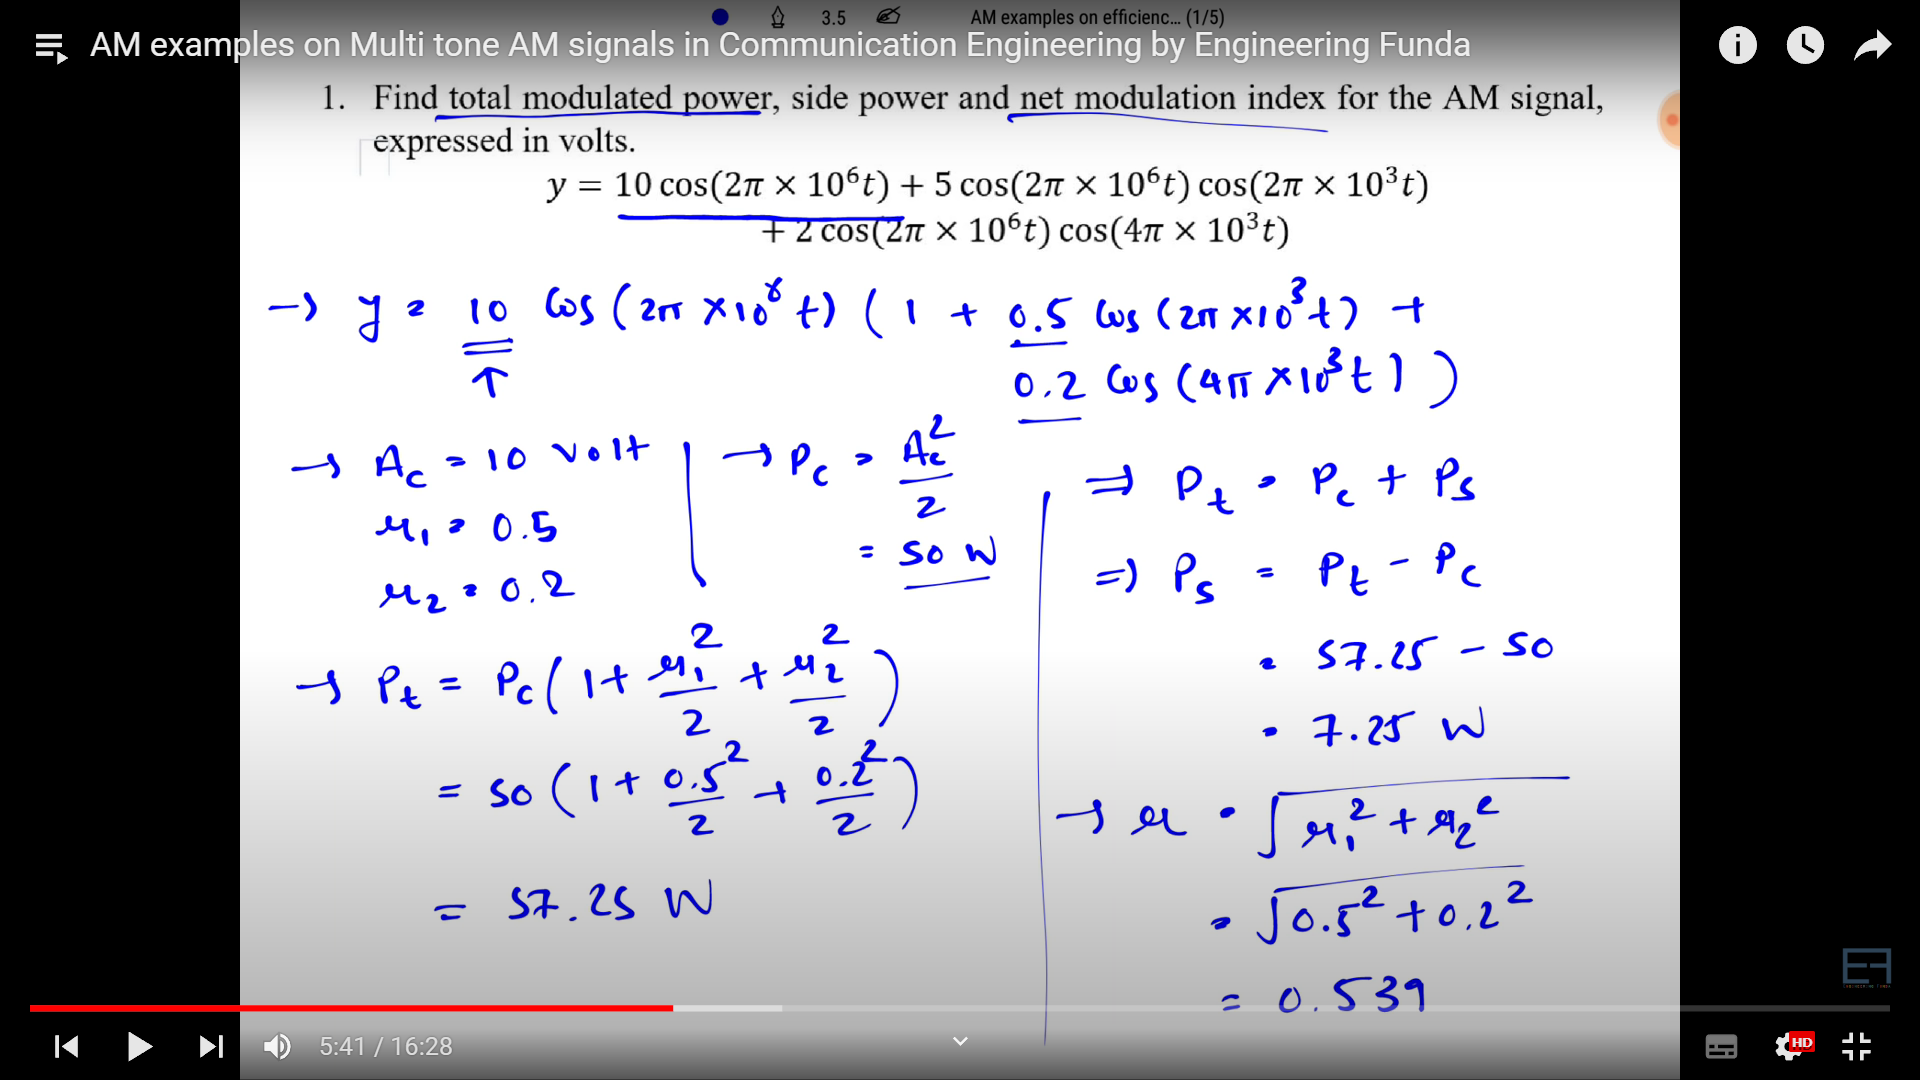 3.5 AM examples on efficienc... (1/5)
AM examples on Multi tone AM signals in Communication Engineering by Engineering Funda
1. Find total modulated power, side power and net modulation index for the AM signal,
expressed in volts.
y = 10 cos(2π × 10⁶t) + 5 cos(2π × 10⁶t) cos(2π × 10³t)
+ 2 cos(2π × 10⁶t) cos(4π × 10³t)
→ y = 10 cos (2π ×10⁶ t) ( 1 + 0.5 cos (2π ×10³ t) +
↑ 0.2 cos (4π ×10³ t) )
→ Ac = 10 volt
μ₁ = 0.5
μ₂ = 0.2
→ Pc = Ac²/2
= 50 W
→ Pt = Pc ( 1 + μ₁²/2 + μ₂²/2 )
= 50 ( 1 + 0.5²/2 + 0.2²/2 )
= 57.25 W
⇒ Pt = Pc + Ps
⇒ Ps = Pt - Pc
= 57.25 - 50
= 7.25 W
→ μ = √(μ₁² + μ₂²)
= √(0.5² + 0.2²)
= 0.539
5:41 / 16:28
HD